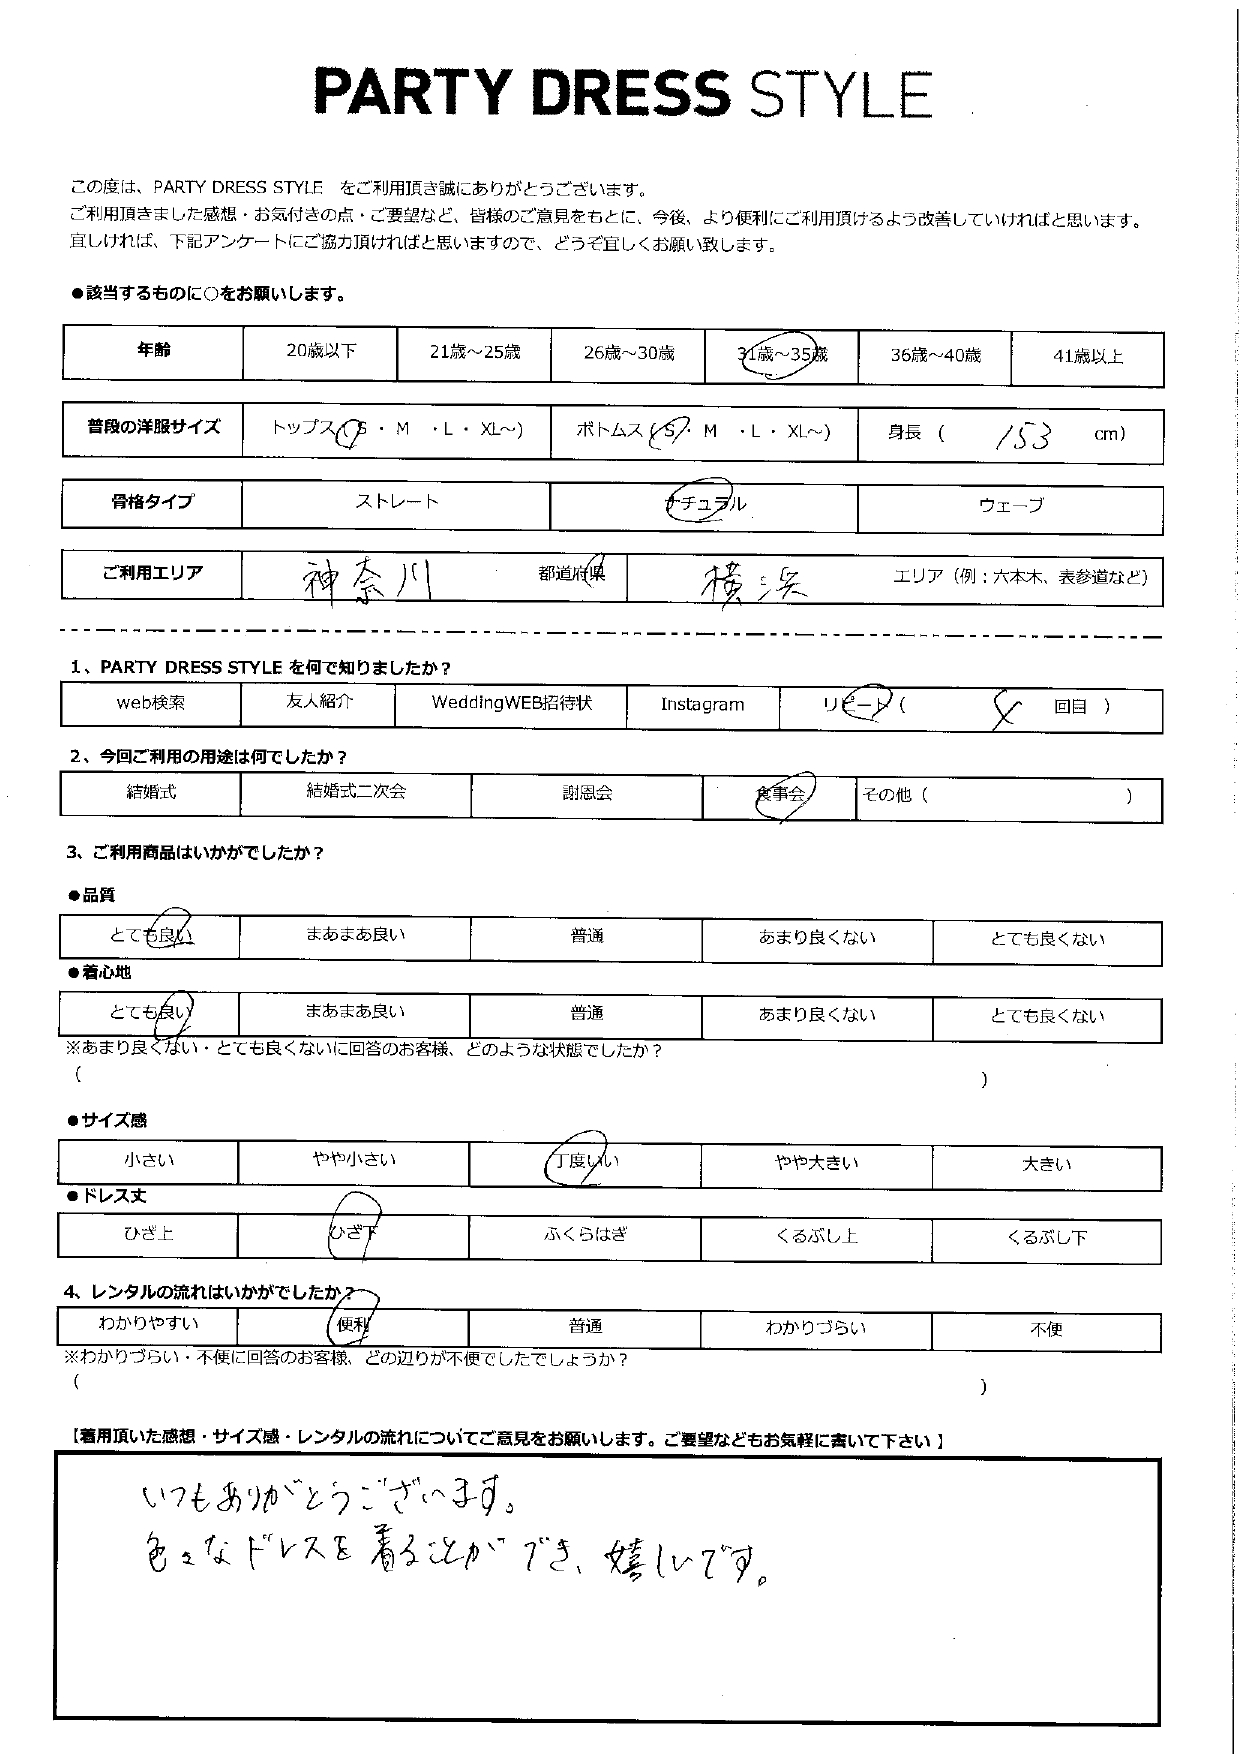 PARTY DRESS STYLE
この度は、PARTY DRESS STYLE をご利用頂き誠にありがとうございます。
ご利用頂きました感想・お気付きの点・ご要望など、皆様のご意見をもとに、今後、より便利にご利用頂けるよう改善していければと思います。
宜しければ、下記アンケートにご協力頂ければと思いますので、どうぞ宜しくお願い致します。
●該当するものに○をお願いします。
年齢 20歳以下 21歳～25歳 26歳～30歳 31歳～35歳 36歳～40歳 41歳以上
普段の洋服サイズ トップス(S・M ・L・XL～) ボトムス(S・M ・L・XL～) 身長 ( 153 cm)
骨格タイプ ストレート ナチュラル ウェーブ
ご利用エリア 神奈川 都道府県 横浜 エリア（例：六本木、表参道など）
1、PARTY DRESS STYLE を何で知りましたか？
web検索 友人紹介 WeddingWEB招待状 Instagram リピート ( 回目 )
2、今回ご利用の用途は何でしたか？
結婚式 結婚式二次会 謝恩会 食事会 その他 ( )
3、ご利用商品はいかがでしたか？
●品質
とても良い まあまあ良い 普通 あまり良くない とても良くない
●着心地
とても良い まあまあ良い 普通 あまり良くない とても良くない
※あまり良くない・とても良くないに回答のお客様、どのような状態でしたか？
( )
●サイズ感
小さい やや小さい 丁度いい やや大きい 大きい
●ドレス丈
ひざ上 ひざ下 ふくらはぎ くるぶし上 くるぶし下
4、レンタルの流れはいかがでしたか？
わかりやすい 便利 普通 わかりづらい 不便
※わかりづらい・不便に回答のお客様、どの辺りが不便でしたでしょうか？
( )
【着用頂いた感想・サイズ感・レンタルの流れについてご意見をお願いします。ご要望などもお気軽に書いて下さい】
いつもありがとうございます。
色々なドレスを着ることができ、嬉しいです。